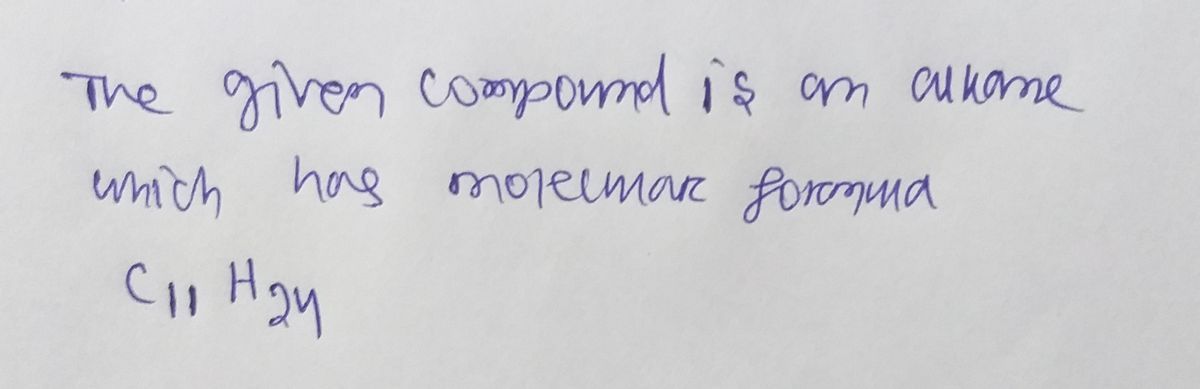 The given compound is an alkane
which has molecular formula
C11 H24